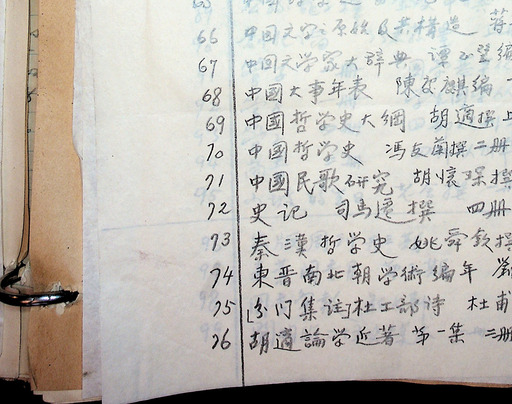 66 中国文字之原始及其構造 蒋
67 中国文学家大辞典 譚正璧編
68 中國大事年表 陳慶麒編
69 中國哲学史大綱 胡適撰 上
70 中國哲学史 馮友蘭撰 二册
71 中國民歌研究 胡懷琛撰
72 史记 司馬遷撰 四册
73 秦漢哲学史 姚舜欽撰
74 東晋南北朝学術編年 劉
75 [分门集註]杜工部诗 杜甫
76 胡適論学近著 第一集 二册